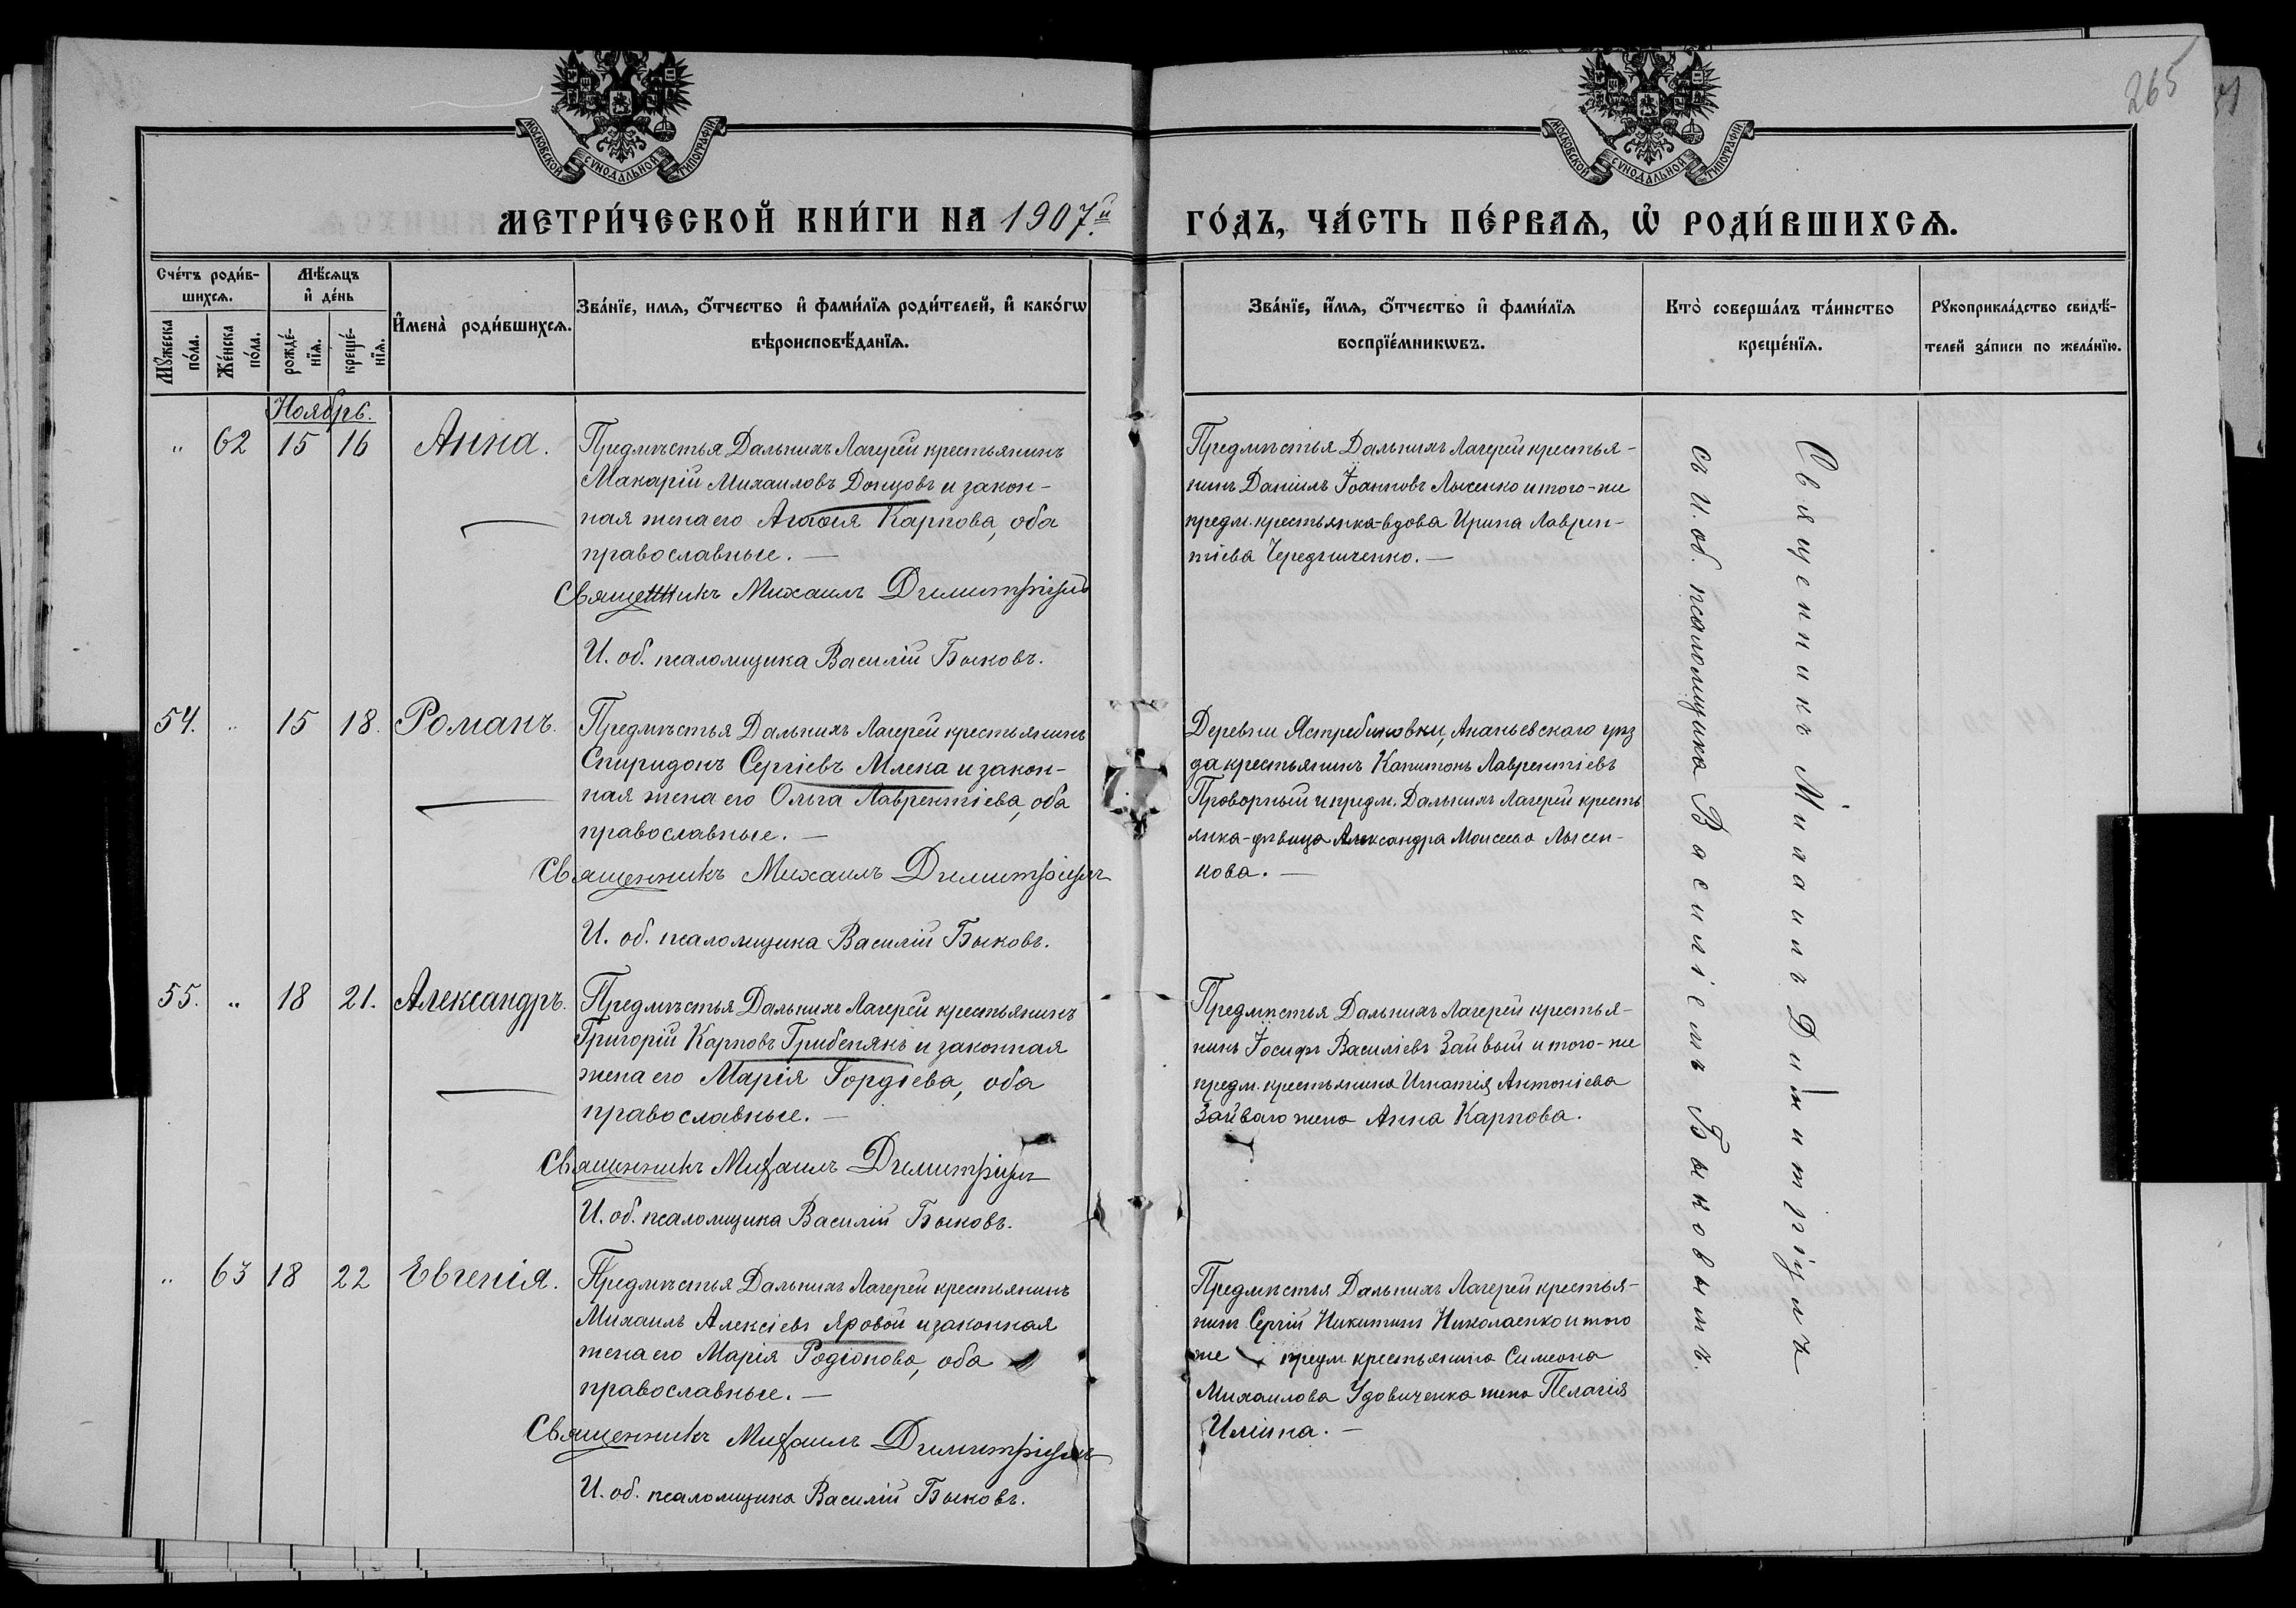 265
МОСКОВСКОЙ СУНОДАЛЬНОЙ ТИПОГРАФІИ
МОСКОВСКОЙ СУНОДАЛЬНОЙ ТИПОГРАФІИ
МЕТРИ́ЧЕСКОЙ КНИ́ГИ НА 1907.й
ГО́ДЪ, ЧА́СТЬ ПЕ́РВАѦ, Ѡ҆ РОДИ́ВШИХСѦ.
Сче́тъ роди́в-
шихсѧ.
Мꙋ́жеска
по́ла.
Же́нска
по́ла.
Мѣ́сѧцъ
и҆ де́нь
рожде́-
нїѧ.
креще́-
нїѧ.
И҆мена̀ роди́вшихсѧ.
Зва́нїе, имѧ, ѻ҆́тчество и҆ фами́лїѧ роди́телей, и҆ како́гѡ
вѣроисповѣ́данїѧ.
Зва́нїе, и҆́мѧ, ѻ҆́тчество и҆ фами́лїѧ
воспрїе́мникѡвъ.
Кто̀ соверша́лъ та́инство
креще́нїѧ.
Рꙋкоприкла́дство свидѣ́-
телей за́писи по жела́нїю.
Ноябрь.
„ 62 15 16 Анна.
Предмѣстья Дальнихъ Лагерей крестьянинъ
Макарій Михаиловъ Донцовъ и закон-
ная жена его Агафія Карпова, оба
православные. —
Священникъ Михаилъ Димитріцъ
И. об. псаломщика Василій Быковъ.
Предмѣстья Дальнихъ Лагерей крестья-
нинъ Даніилъ Іоанновъ Лысенко и того-же
предм. крестьянка-вдова Ирина Лаврен-
тіева Чередниченко. —
54. „ 15 18. Романъ.
Предмѣстья Дальнихъ Лагерей крестьянинъ
Спиридонъ Сергіевъ Млека и закон-
ная жена его Ольга Лаврентіева, оба
православные. —
Священникъ Михаилъ Димитріцъ
И. об. псаломщика Василій Быковъ.
Деревни Ястребиновки, Ананьевскаго уѣз
да крестьянинъ Капитонъ Лаврентіевъ
Проворный и предм. Дальнихъ Лагерей кресть
янка-дѣвица Александра Моисеева Лысен-
кова. —
55. „ 18 21. Александръ.
Предмѣстья Дальнихъ Лагерей крестьянинъ
Григорій Карповъ Грибенякъ и законная
жена его Марія Гордіева, оба
православные. —
Священникъ Михаилъ Димитріцъ
И. об. псаломщика Василій Быковъ.
Предмѣстья Дальнихъ Лагерей крестья-
нинъ Іосифъ Василіевъ Зайвый и того-же
предм. крестьянина Игнатія Антоніева
Зайваго жена Анна Карпова.
„ 63 18 22 Евгенія.
Предмѣстья Дальнихъ Лагерей крестьянинъ
Михаилъ Алексіевъ Яровой и законная
жена его Марія Родіонова, оба
православные. —
Священникъ Михаилъ Димитріцъ
И. об. псаломщика Василій Быковъ.
Предмѣстья Дальнихъ Лагерей крестья-
нинъ Сергій Никитинъ Николаенко и того
же предм крестьянина Симеона
Михаилова Удовиченка жена Пелагія
Иліина. —
Священникъ Михаилъ Димитріцъ
съ И. об. псаломщика Василіемъ Быковымъ.